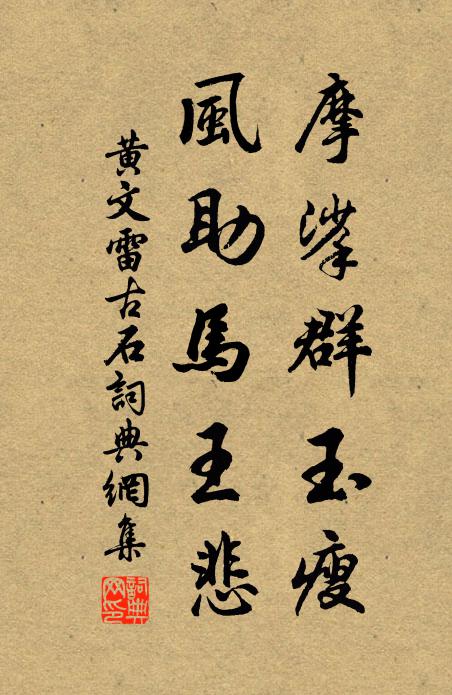 摩挲群玉瘦
風助馬王悲
黃文雷古石詞典網集
詞典網印